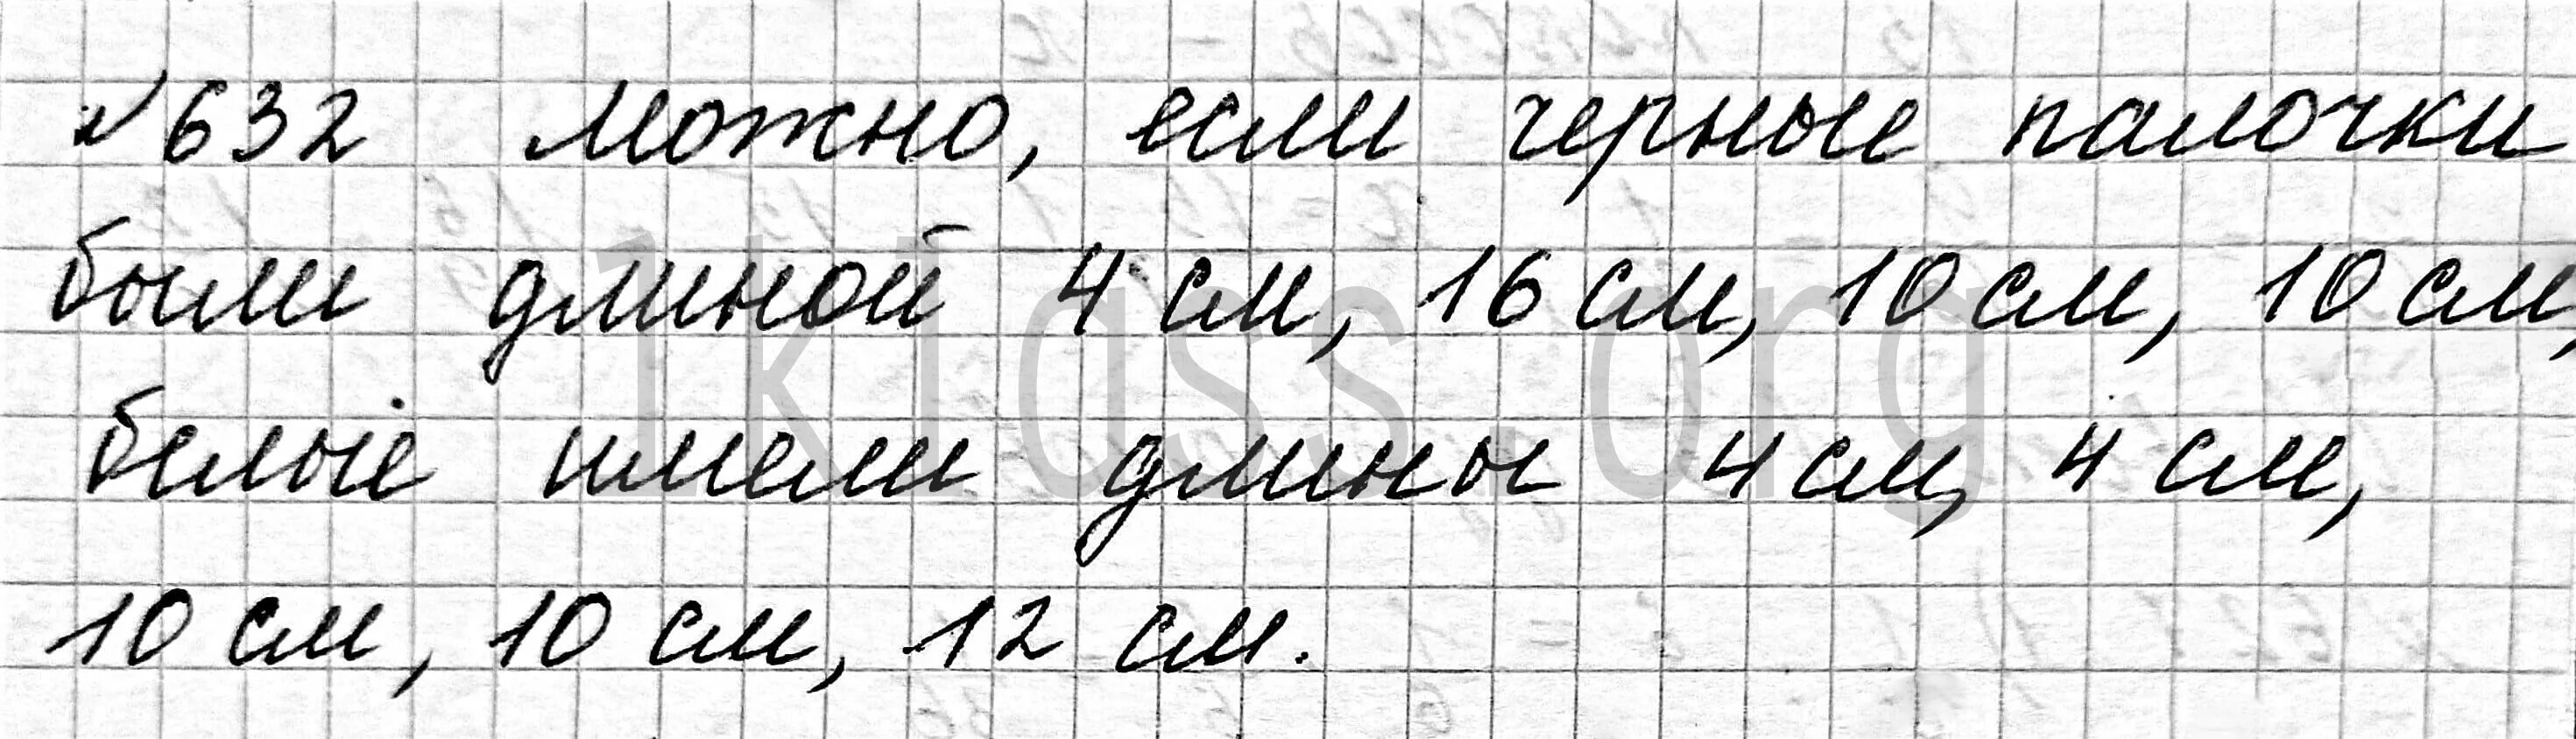 №632 Можно, если черные палочки
были длиной 4 см, 16 см, 10 см, 10 см,
белые имели длины 4 см, 4 см,
10 см, 10 см, 12 см.
1klass.org